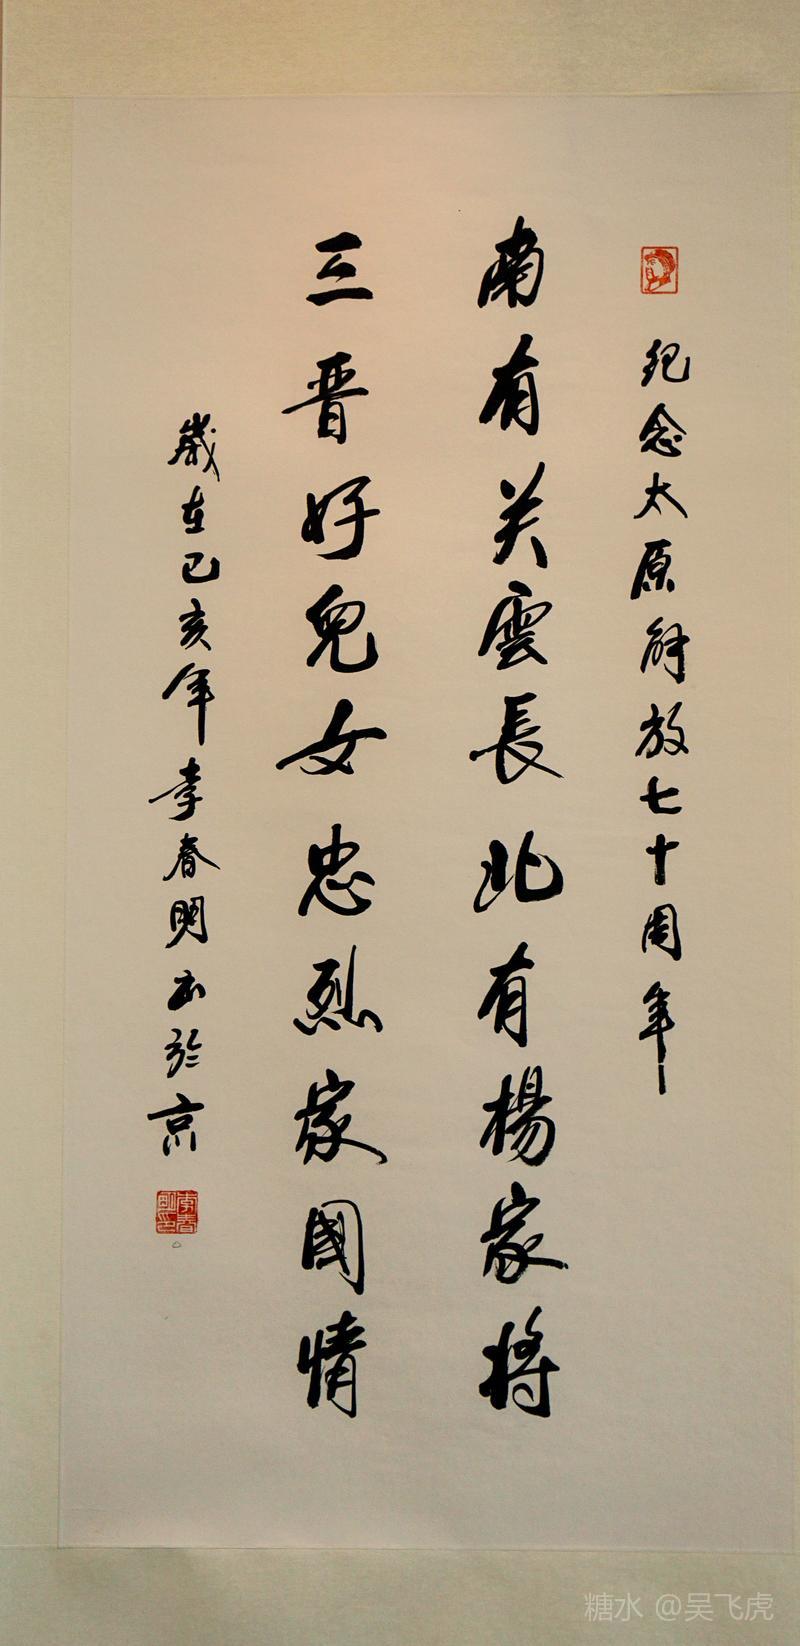 纪念太原解放七十周年
南有关雲長北有楊家将
三晋好兒女忠烈家國情
歲在己亥年李春明书於京
李春明印
糖水 @吴飞虎